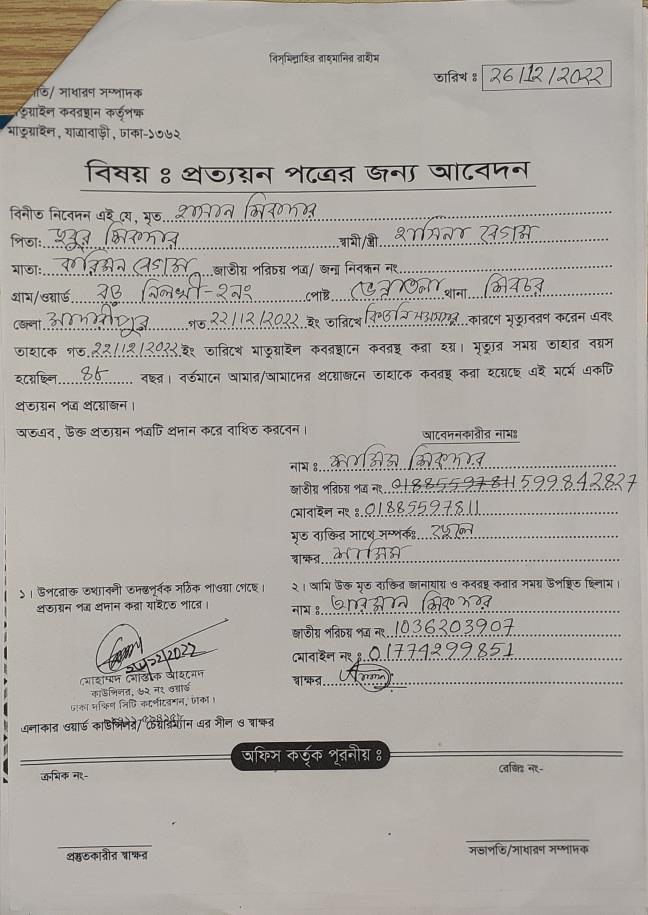 বিস্‌মিল্লাহির রাহ্‌মানির রাহীম
তারিখ ঃ 26/12/2022
পতি/ সাধারণ সম্পাদক
তুয়াইল কবরস্থান কর্তৃপক্ষ
মাতুয়াইল, যাত্রাবাড়ী, ঢাকা-১৩৬২
বিষয় ঃ প্রত্যয়ন পত্রের জন্য আবেদন
বিনীত নিবেদন এই যে, মৃত হাসান শিকদার
পিতাঃ শিকদার স্বামী/স্ত্রী হাসিনা বেগম
মাতাঃ বেগম জাতীয় পরিচয় পত্র/ জন্ম নিবন্ধন নং
গ্রাম/ওয়ার্ড -২নং পোষ্ট থানা শিবচর
জেলা মাদারীপুর গত 22/12/2022 ইং তারিখে কারণে মৃত্যুবরণ করেন এবং
তাহাকে গত 22/12/2022 ইং তারিখে মাতুয়াইল কবরস্থানে কবরস্থ করা হয়। মৃত্যুর সময় তাহার বয়স
হয়েছিল বছর। বর্তমানে আমার/আমাদের প্রয়োজনে তাহাকে কবরস্থ করা হয়েছে এই মর্মে একটি
প্রত্যয়ন পত্র প্রয়োজন।
অতএব, উক্ত প্রত্যয়ন পত্রটি প্রদান করে বাধিত করবেন।
আবেদনকারীর নামঃ
নাম ঃ শিকদার
জাতীয় পরিচয় পত্র নং 01885597811 599842827
মোবাইল নং ঃ 01885597811
মৃত ব্যক্তির সাথে সম্পর্কঃ
স্বাক্ষর
১। উপরোক্ত তথ্যাবলী তদন্তপূর্বক সঠিক পাওয়া গেছে।
প্রত্যয়ন পত্র প্রদান করা যাইতে পারে।
২। আমি উক্ত মৃত ব্যক্তির জানাযায় ও কবরস্থ করার সময় উপস্থিত ছিলাম।
নাম ঃ আরমান শিকদার
জাতীয় পরিচয় পত্র নং 1036203907
মোবাইল নং ঃ 01774299851
স্বাক্ষর
মোহাম্মদ মোস্তাক আহমেদ
কাউন্সিলর, ৬২ নং ওয়ার্ড
ঢাকা দক্ষিণ সিটি কর্পোরেশন, ঢাকা।
এলাকার ওয়ার্ড কাউন্সিলর/ চেয়ারম্যান এর সীল ও স্বাক্ষর
অফিস কর্তৃক পূরনীয় ঃ
ক্রমিক নং-
রেজিঃ নং-
প্রস্তুতকারীর স্বাক্ষর
সভাপতি/সাধারণ সম্পাদক